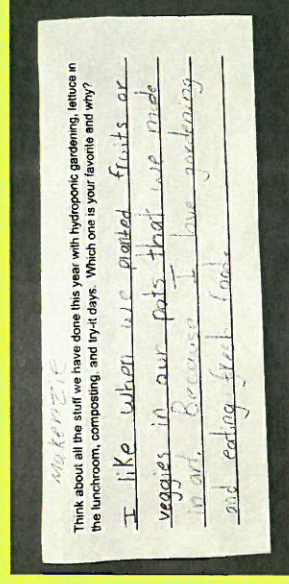 Makenzie
Think about all the stuff we have done this year with hydroponic gardening, lettuce in
the lunchroom, composting, and try-it days. Which one is your favorite and why?
I like when we planted fruits or
veggies in our pots that we made
in art. Because I love gardening
and eating fresh food.